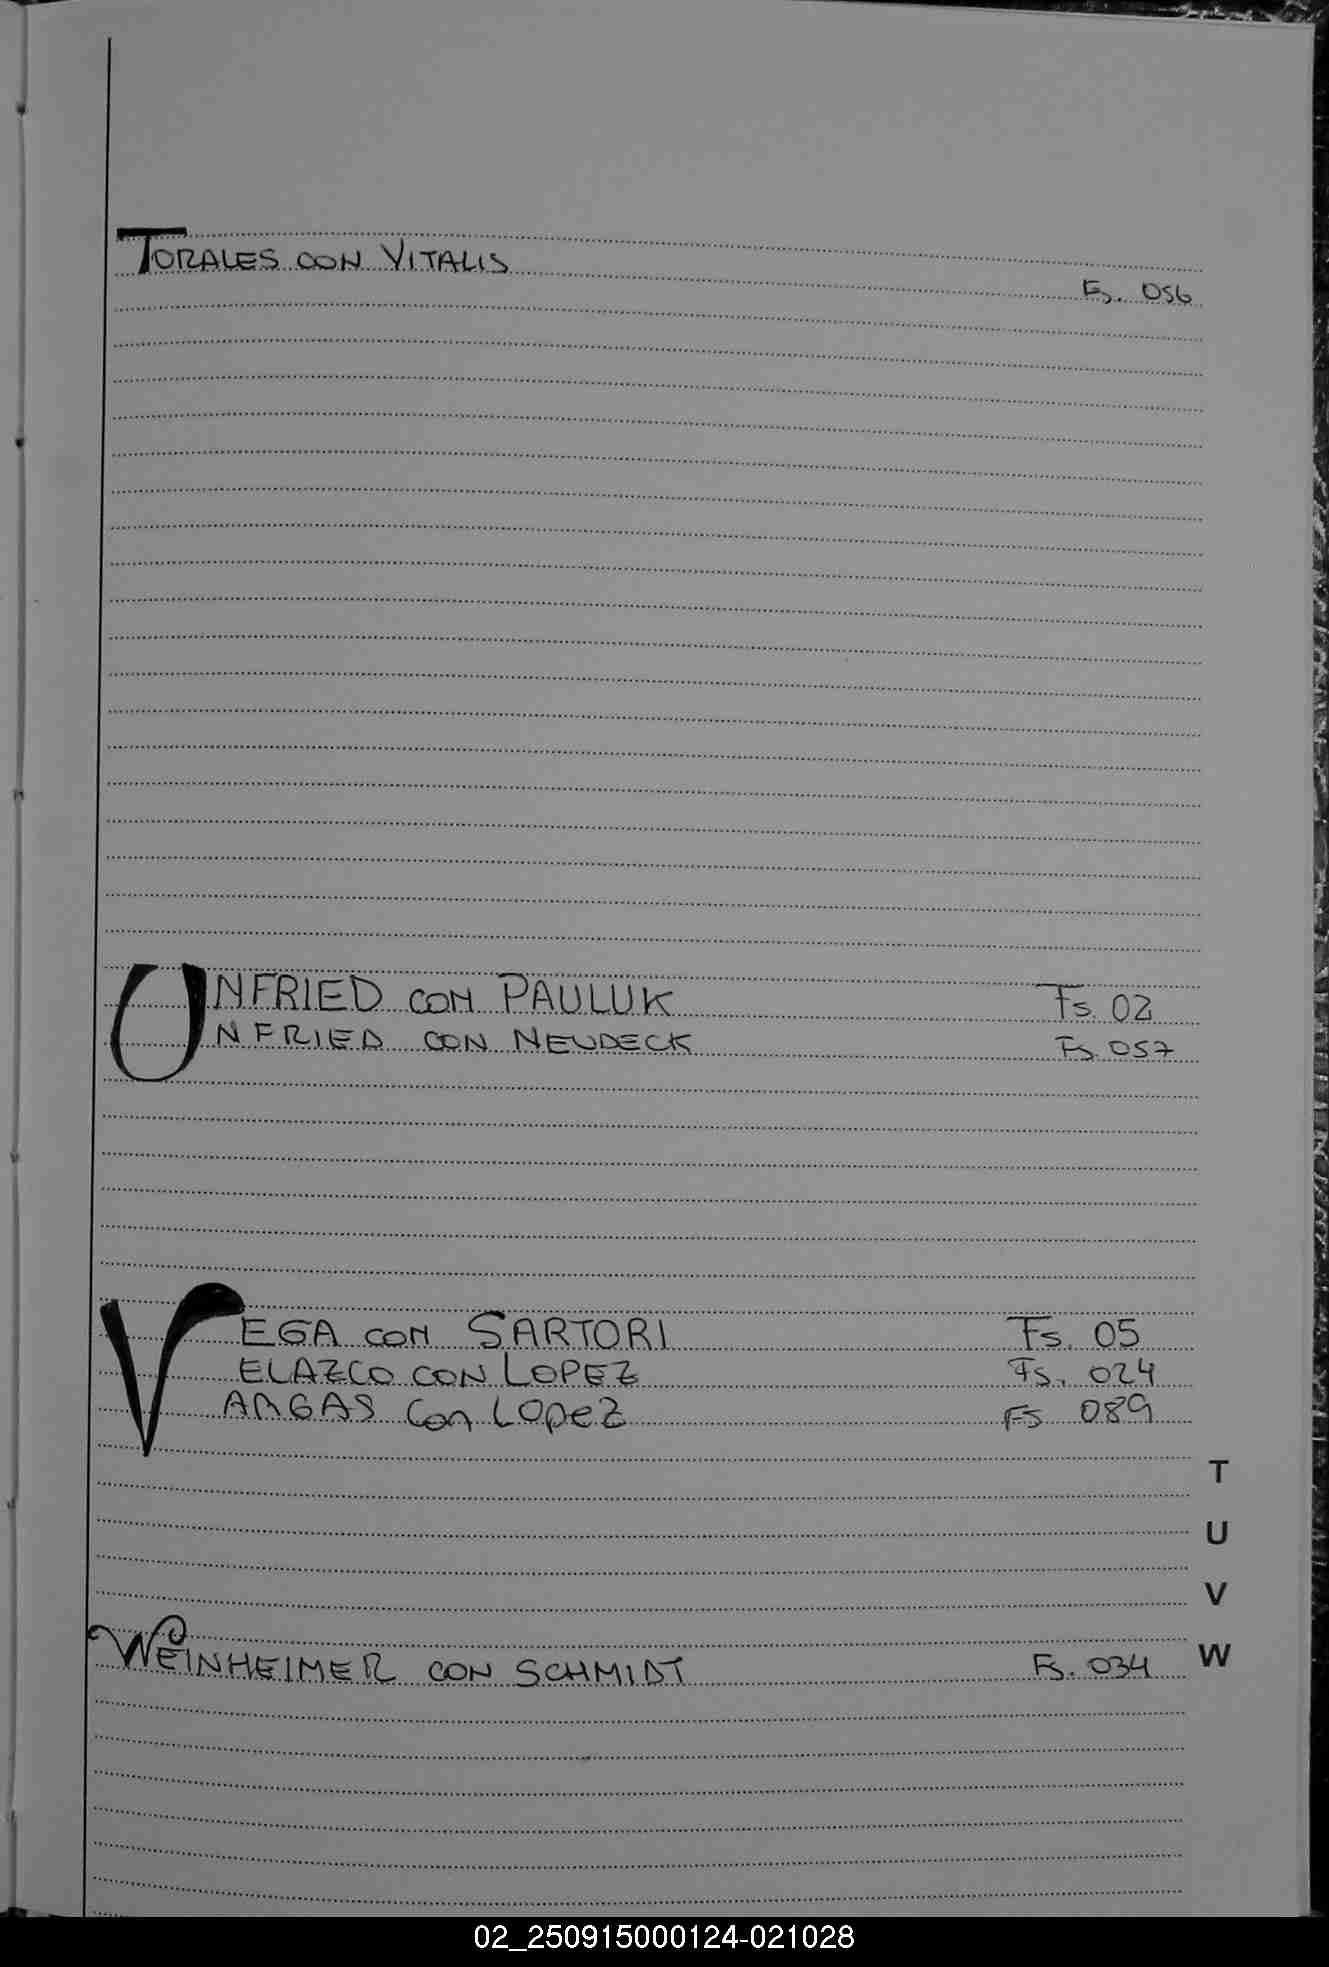 TORALES CON VITALIS Fs. 056
UNFRIED CON PAULUK Fs. 02
UNFRIED CON NEUDECK Fs. 057
VEGA CON SARTORI Fs. 05
VELAZCO CON LOPEZ Fs. 024
VARGAS Con LOPeZ FS 089
T
U
V
WEINHEIMER CON SCHMIDT Fs. 034
W
02_250915000124-021028